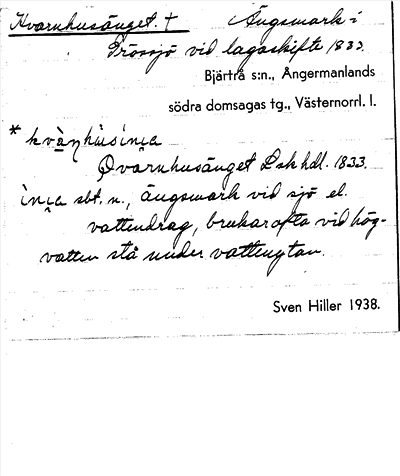 Kvarnhusänget. † Ängsmark i
Prössjö vid lagaskifte 1833.
Bjärtrå s:n., Ångermanlands
södra domsagas tg., Västernorrl. l.
* kvạ̀ṇhùsìnịa
Qvarnhusänget Lsk hdl. 1833.
ìnịa sbt. n., ängsmark vid sjö el.
vattendrag, brukar ofta vid hög-
vatten stå under vattenytan.
Sven Hiller 1938.